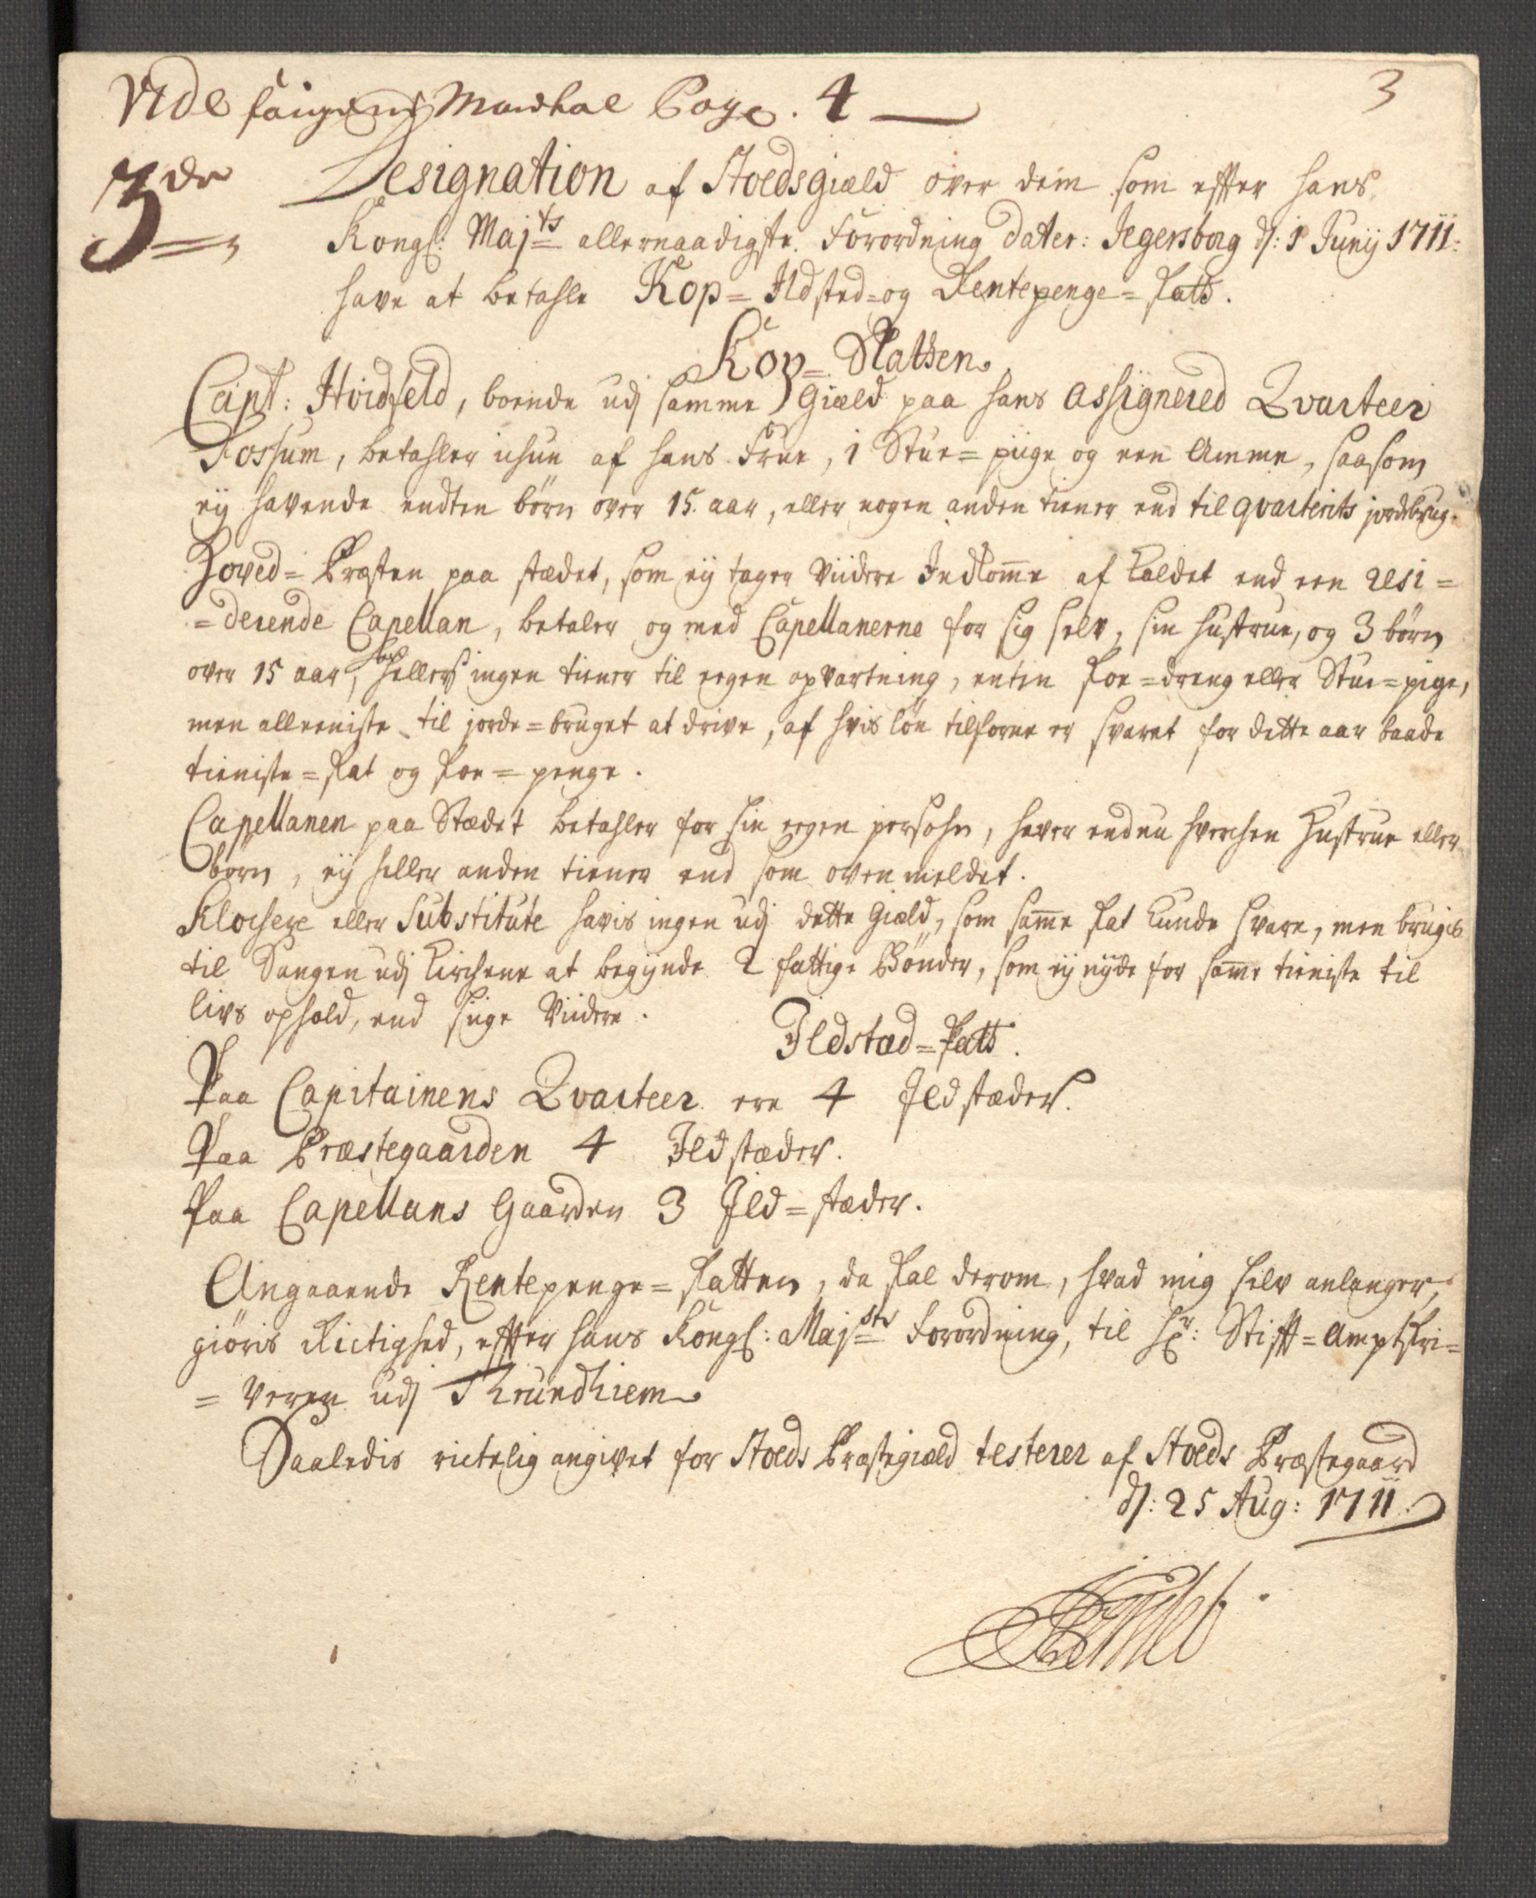 Vide Mandtal Page. 4
3
3de
Designation af Stoedsgield over dem som effter hans
Kongl: Majts allernaadigste Forordning dater: Jegersborg d: 1 Junij 1711:
have at betahle Kop= Ildsted= og Rentepenge= skatt.
Kop= Skatten
Capt: Hvidfeld, boende udj samme Gield paa hans assignered Qvarteer
Fossum, betahler ichun af hans Frue, 1 Stue= piige og een Amme, saasom
eij havende endten børn over 15. aar, eller nogen anden tiener end til qvarterits jordebrug.
Hoved= Præsten paa stædet, som eij tager viidere Indkomme af Kaldet end een resi=
=derende Capellan, betaler og med Capellanerne for sig selv, sin hustrue, og 3 børn
over 15 aar, hellers ingen tiener til eegen opvartning, enten skoe=dreng eller Stue=pige,
men alleeniste til jorde=bruget at drive, af hvis løn tilforne er svaret for dette aar baade
tieniste= skat og skoe= penge.
Capellanen paa Stædet betahler for sin eegen persohn, haver endnu hverchen hustrue eller
børn, eij heller anden tiener end som ovenmeldet.
Klochere eller Substitute havis ingen udj dette Gield, som samme skat kunde svare, men brugis
til Sangen udj Kirchene at begynde 2 fattige Bønder, som eij nyde for samme tieniste til
livs ophold, end siige viidere.
Ildstæd= skatt.
Paa Capitainens Qvarteer ere 4 Ildstæder.
Paa Præstegaarden 4 Ildstæder.
Paa Capellans Gaarden 3 Ild=stæder.
Angaaende Rentepenge= skatten, da skal derom, hvad mig selv anlanger,
giøris Rictighed, effter hans Kongl: Majsts Forordning, til Hr: Stifft= Amptskri=
= veren udj Thrundhiem
Saaledis rictelig angivet for Stoeds Præstegield testerer af Stoeds Præstegaard
d: 25 Aug: 1711.